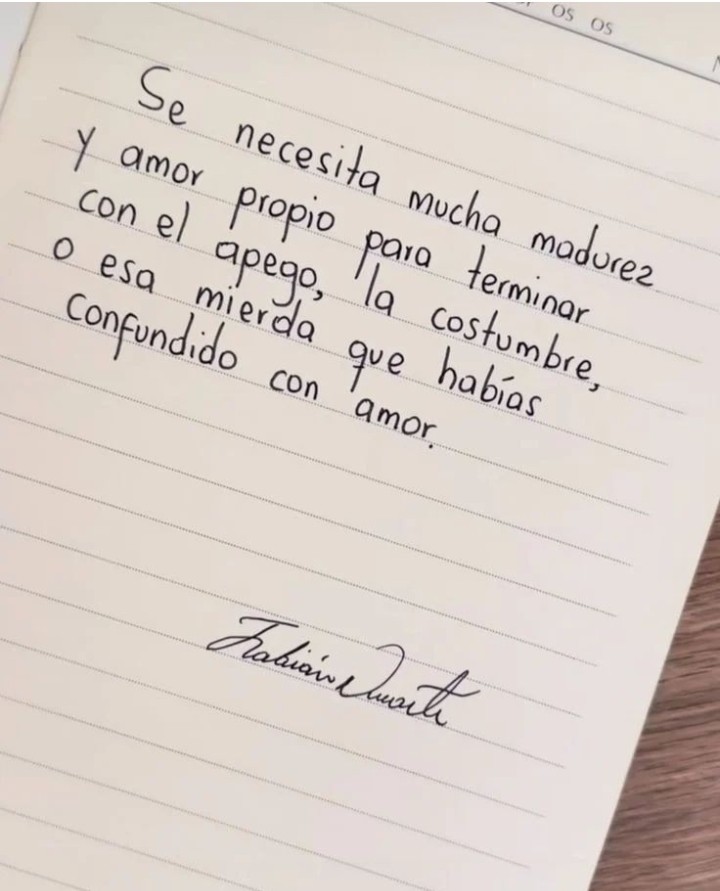 os os
Se necesita mucha madurez
y amor propio para terminar
con el apego, la costumbre,
o esa mierda que habías
confundido con amor.
Fabián Duarte